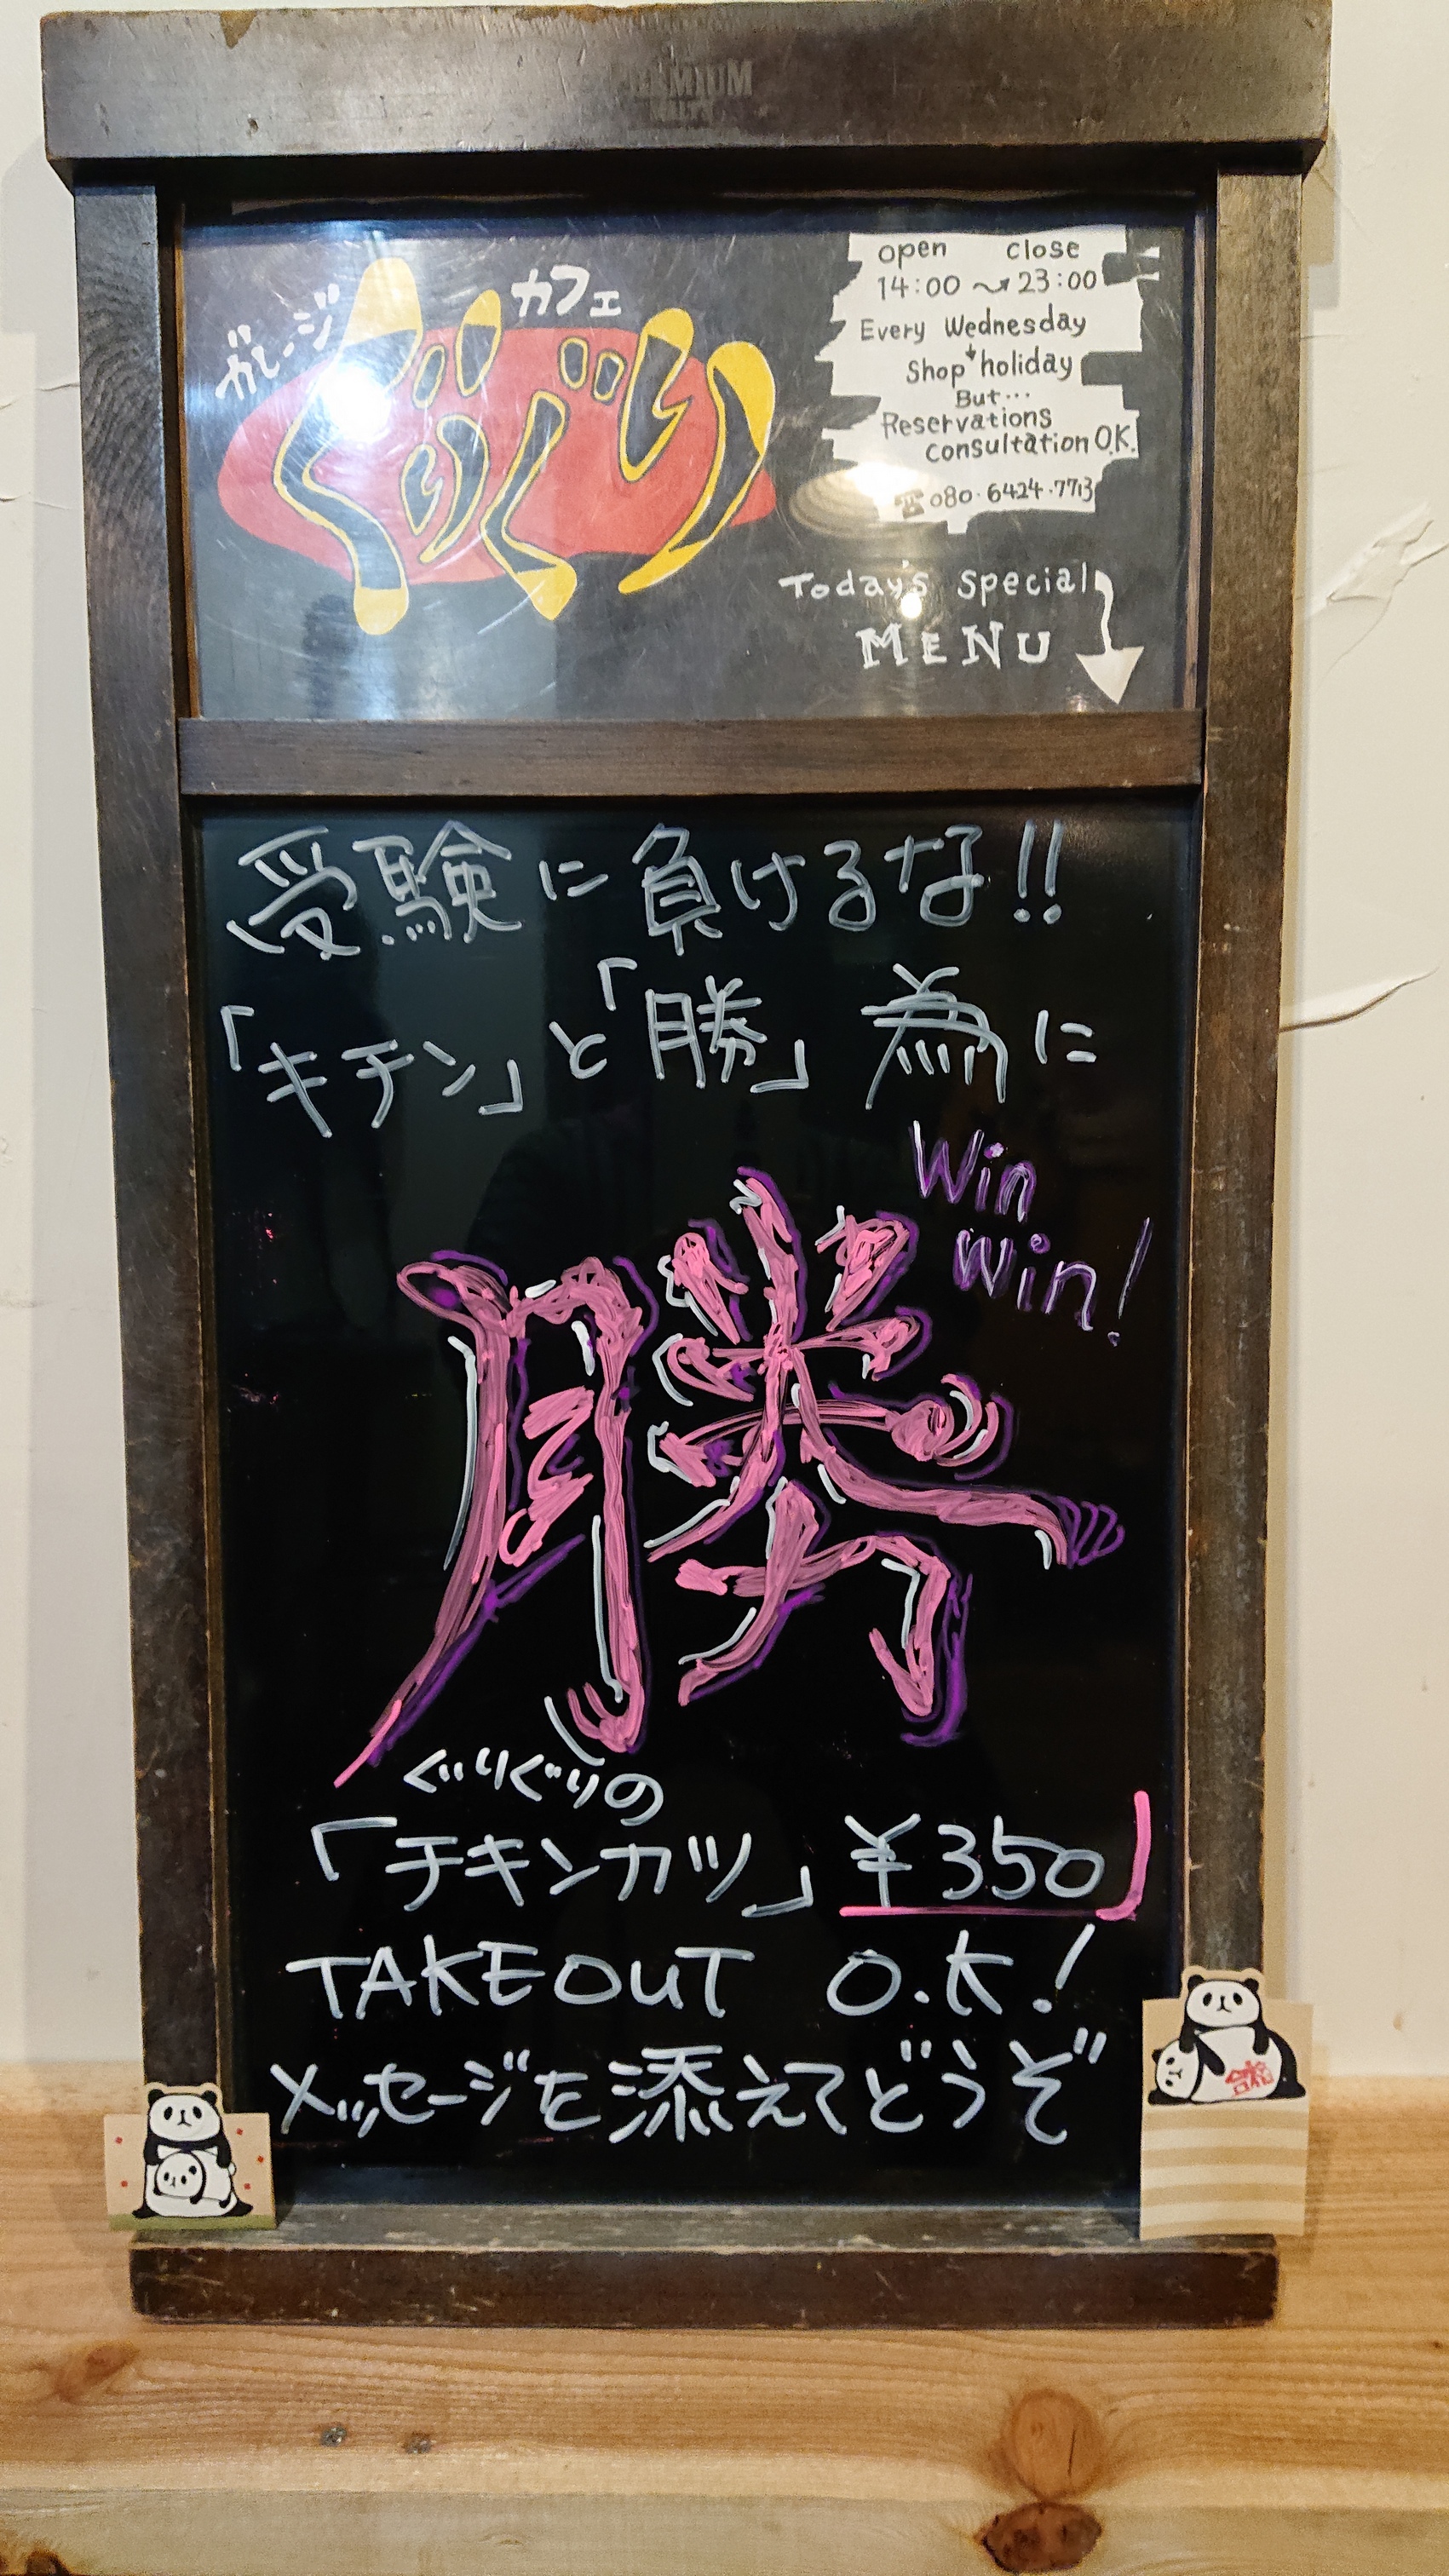 PREMIUM
MALT'S
ガレージ
カフェ
ぐりぐり
open close
14:00 〜 23:00
Every Wednesday
Shop holiday
But…
Reservations
consultation O.K.
☎080・6424・7713
Today's special
MENU
受験に負けるな!!
「キチン」と「勝」為に
Win
win!
勝
ぐりぐりの
「チキンカツ」¥350
TAKEOUT O.K!
メッセージを添えてどうぞ
合格